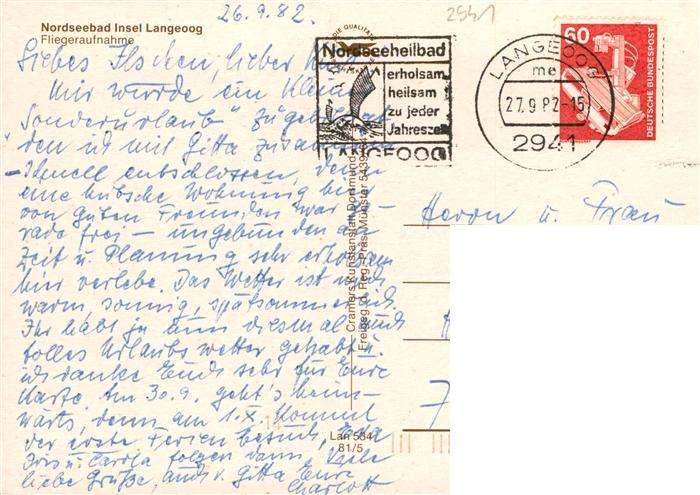 26.9.82.
2941
Nordseebad Insel Langeoog
Fliegeraufnahme
Liebes Ilschen, lieber
Mir wurde ein klein
Sonderurlaub" 
den ich mit Gitta
schnell entschlossen, denn
eine hübsche Wohnung
von guten Freunden war
rade frei – ungebunden an
Zeit u. Planung sehr erholsam
hier verlebe. Das Wetter ist noch
warm, sonnig, spätsommerlich.
Ihr habt ja nun diesmal auch
tolles Urlaubswetter gehabt u.
ich danke Euch sehr für Eure
Karte. Am 30.9. geht's heim-
wärts, denn am 1.X. kommt
der erste Ferienbesuch,
Iris u. folgen dann. Viele
liebe Grüße, auch v. Gitta Eure
Charlott
DIE QUALITÄT
Nordseeheilbad
erholsam
heilsam
zu jeder
Jahreszeit
LANGEOOG
LANGEOOG
me
27.9.82-15
2941
60
DEUTSCHE BUNDESPOST
Herrn u. Frau
Cramers Kunstanstalt Dortmund
Freigeg. d. Reg.-Präs. Münster 5439
Lan 584
81/5